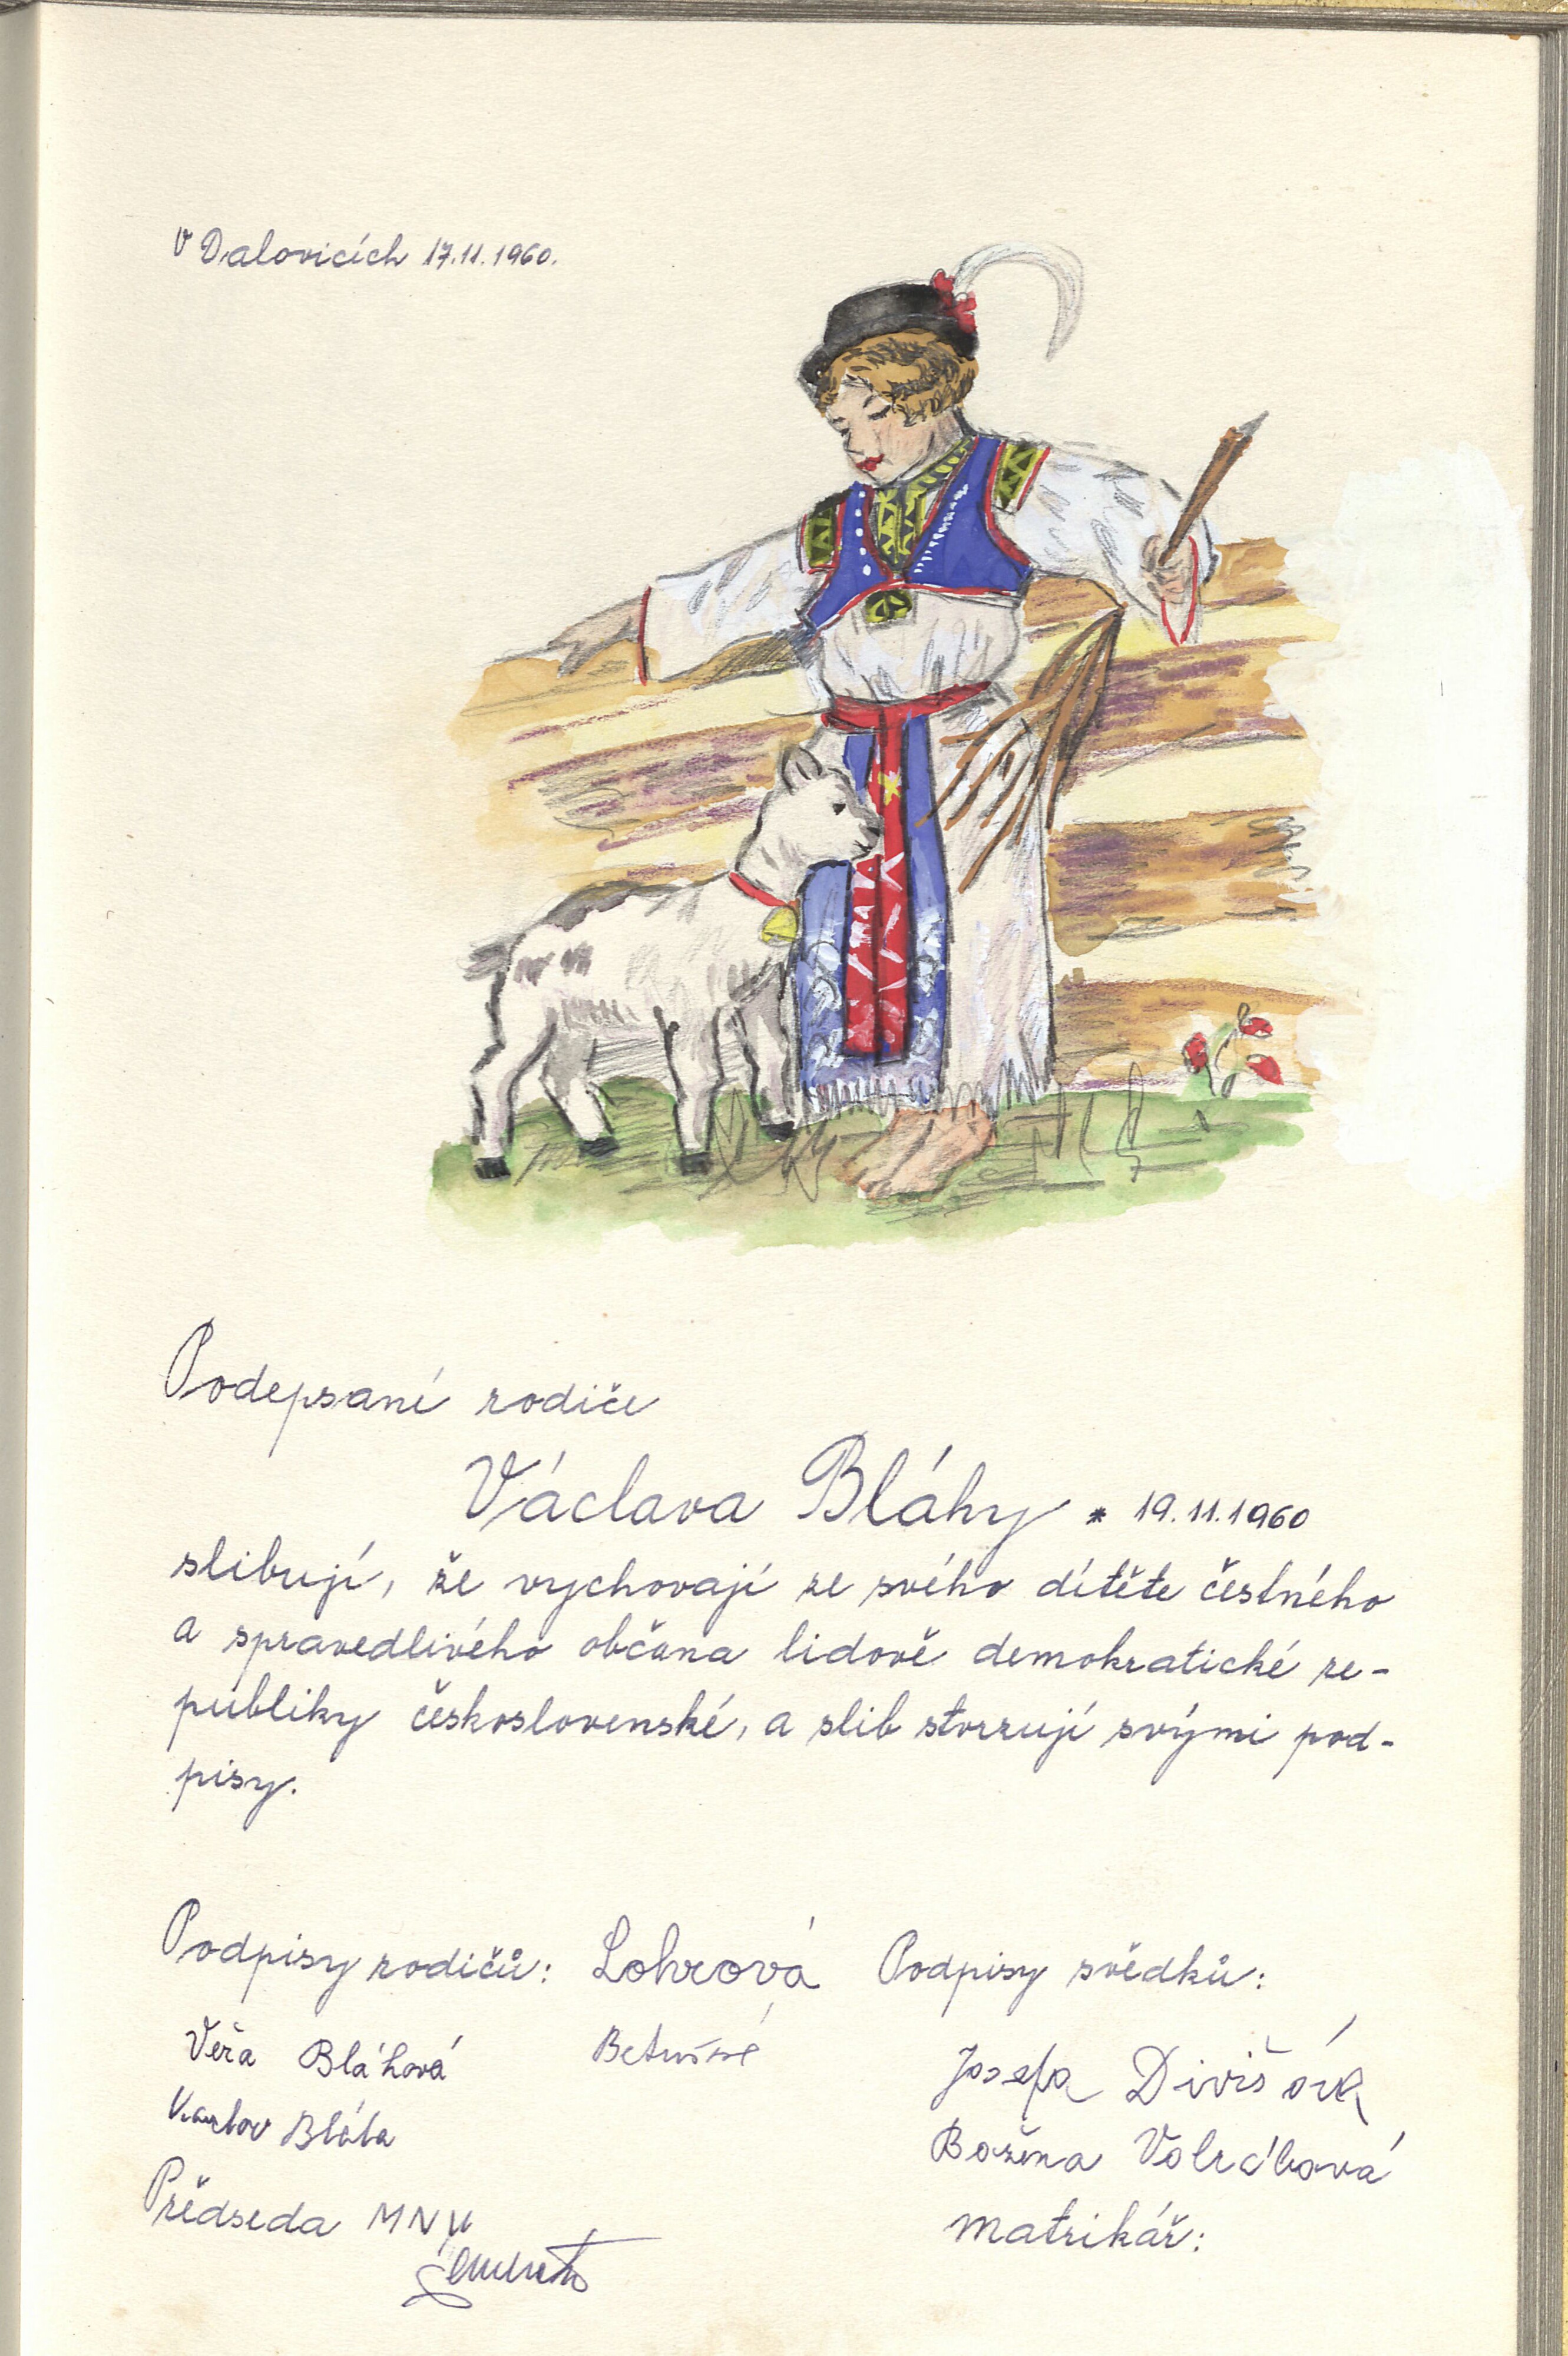 V Dalovicích 17.11.1960.
Podepsaní rodiče
Václava Bláhy * 19.11.1960
slibují, že vychovají ze svého dítěte čestného
a spravedlivého občana lidově demokratické re-
publiky československé, a slib stvrzují svými pod-
pisy.
Podpisy rodičů: Lohrová Podpisy svědků:
Věra Bláhová
Josefa Divišová
Bláha
Božena
Předseda MNV
matrikář: